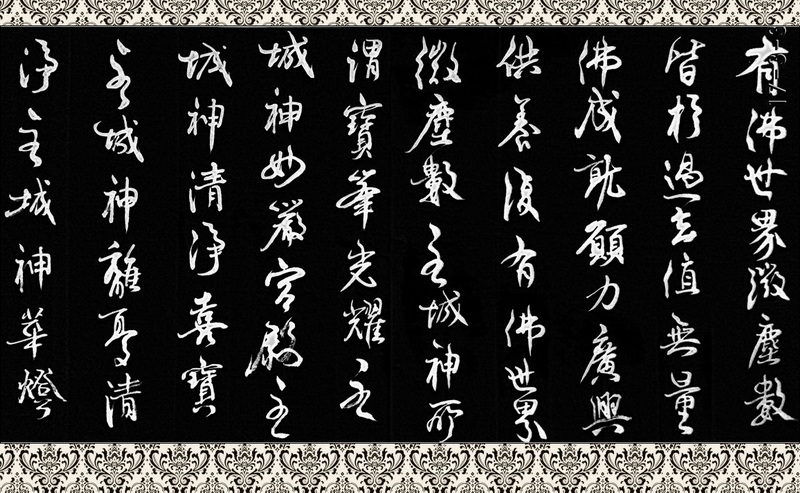 有佛世界微塵數
皆於過去值無量
佛成就願力廣興
供養復有佛世界
微塵數主城神所
謂寶峯光耀主
城神妙嚴宮殿主
城神清淨喜寶
主城神離憂清
淨主城神華燈